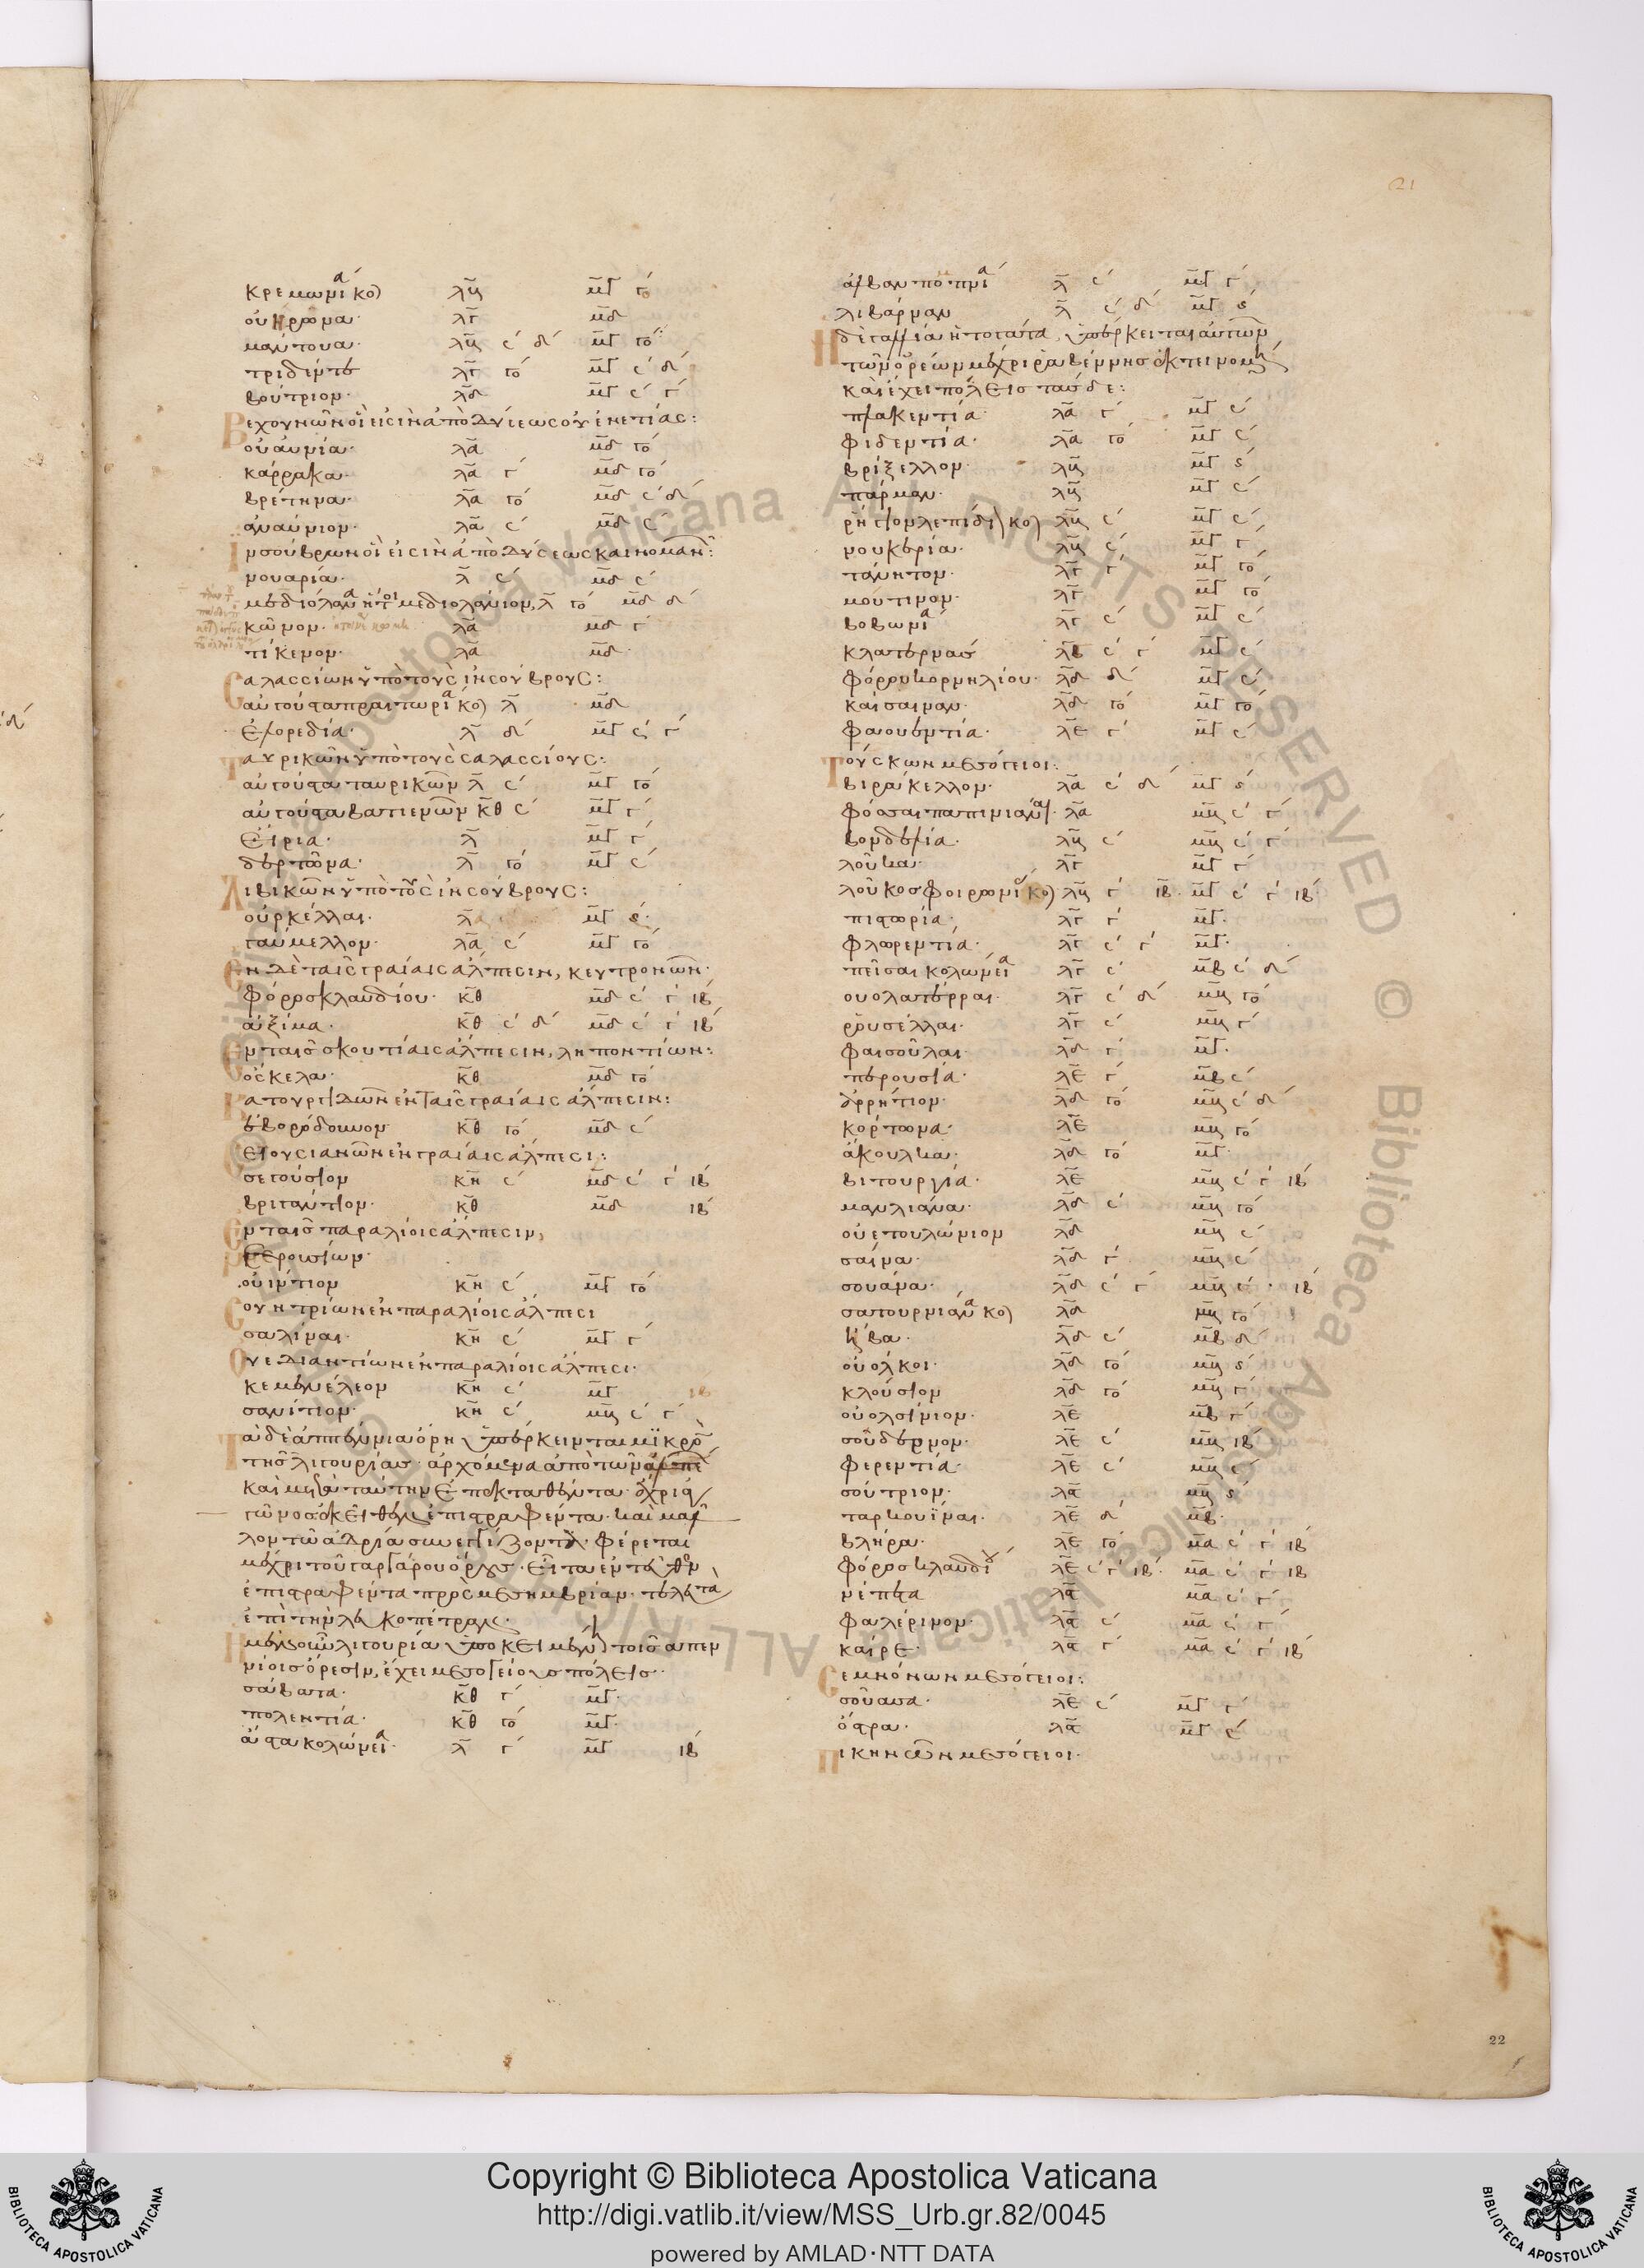 21
κρεμωνι^α κο)  λβ  μγ  γο
οὐήρωνα·  λγ  μδ
μάντουα·  λβ  ς´ δ´  μγ  γο
τριδέντε  λγ  γο  μγ  ς´ δ´
βούτριον·  λδ  μγ  ς´ γ´
Βεχουνῶν οἵ εἰσιν ἀπὸ δύσεως οὐενετίας:
οὐαυνία·  λα  μδ  γο
κάρρακα·  λα  γ´  μδ  γο
βρέτηνα·  λα  γο  μδ  ς´ δ´
ἀναύνιον·  λα  ς´  μδ  ς´
Ἰνσούβρων οἵ εἰσιν ἀπὸ δύσεως
νουαρία·  λ  ς´  μδ  ς´
μεδιόλανα ἤτοι μεδιολάνιον,  λ  γο  μδ  δ´
κῶμον·  λα  μδ  γ´
τίκενον·  λα  μδ
Σαλασσίων ὑπὸ τοὺς ἰνσούβρους:
αὐγούστα πραιτωρι^α κο)  λ  μδ
ἐπορεδία·  λ  δ´  μγ  ς´ γ´
Ταυρικῶν ὑπὸ τοὺς σαλασσίους:
αὐγούστα ταυρικῶν  λ  ς´  μγ  γο
αὐγούστα βατιενῶν  κθ  ς´  μγ  γ´
εἴρια·  λ  μγ  γ´
δερτῶνα·  λ  γο  μγ  ς´
Λιβικῶν ὑπὸ τοὺς ἰνσούβρους:
οὐρκέλλαι·  λ  μγ  ς´
γαύμελλον·  λα  ς´  μγ  γο
Ἐν δὲ ταῖς γραίαις ἄλπεσιν, κευτρονῶν·
φόρος κλαυδίου·  κθ  μδ  ς´ γ´ ιβ´
ἀξίμα·  κθ  ς´ δ´  μδ  ς´ γ´ ιβ´
Ἐν ταῖς σκουτίαις ἄλπεσιν, ληποντίων:
ὄσκελα·  κθ  μδ  γο
Κατουριγιδῶν ἐν ταῖς γραίαις ἄλπεσιν:
ἐβορόδουνον  κθ  γο  μδ  ς´
Σεγουσιανῶν ἐν γραίαις ἄλπεσι:
σεγούσιον  κη  ς´  μδ  ς´ γ´ ιβ´
βριγάντιον·  κθ  μδ  ιβ´
Ἐν ταῖς παραλίοις ἄλπεσιν,
νερουσίων·
οὐίντιον  κη  ς´  μγ  γο
Σουητρίων ἐν παραλίοις ἄλπεσι
σαλίναι·  κη  ς´  μγ  γ´
Οὐεδιαντίων ἐν παραλίοις ἄλπεσι·
κεμενέλεον  κη  ς´  μγ
σανίτιον·  κη  ς´  μβ  ς´ γ´
Τὰ δὲ ἀπέννινα ὄρη ὑπέρκεινται μικρὸν
τῆς λιγουρίας· ἀρχόμενα ἀπὸ τῶν ἄλπεων
λον τῶ ἀδρία συνεγγίζοντα· φέρεται
μέχρι τοῦ γαργάρου ὄρους· εἶτα ἐντεῦθεν
ἐπιστραφέντα πρὸς μεσημβρίαν· τελευτᾶ
ἐπὶ τὴν λευκοπέτραν·
Ἡ μὲν οὖν λιγουρία ὑποκειμένη τοῖς ἀπεν
νίοις ὄρεσιν, ἔχει μεσογείους πόλεις·
σάβατα·  κθ  γ´  μγ
πολεντία·  κθ  γο  μγ
ἄστα κολωνει^α·  λ  γ´  μγ  ιβ´
ἄλβαν πομπηι^α  λ  ς´  μγ  γ´
λιβάρναν  λ  ς´ δ´  μγ  ς
Ἡ δὲ γαλλία ἡ τογάτα, ὑπέρκειται αὐτῶν
τῶν ὀρέων μέχρι ῥαβέννης ἐκτεινομένη
καὶ ἔχει πόλεις τάσδε:
πλακεντία·  λα  γ´  μγ  ς´
φιδεντία·  λα  γο  μγ  ς´
βρίξελλον·  λβ  μγ  ς
πάρμαν·  λβ  μγ  ς´
ῥήγιον λεπίδι) κο)  λβ  ς´  μγ  ς´
νουκερία·  λβ  ς´  μγ  γ´
τάνητον·  λγ  γ´  μγ  γο
μούτινον·  λγ  μγ  γο
βοβωνι^α  λγ  ς´  μγ  ς´
κλατερνασ  λβ  ς´ γ´  μγ  ς´
φόρου κορνηλίου·  λδ  δ´  μγ  ς´
καίσαιναν·  λδ  γο  μγ  γο
φαουεντία·  λε  γ´  μγ  ς´
Τούσκων μεσόγειοι:
βιράκελλον·  λα  ς´ δ´  μγ  ς
φόσσαι παπινιανα^ι·  λα  μβ  ς´ γ´
βονδελία·  λβ  ς´  μβ  ς´ γ´
λοῦκα·  λγ  μγ  γ´
λοῦκος φοιρωνι^ο κο)  λβ  γ´  ιβ  μγ  ς´ γ´ ιβ´
πιστωρία·  λγ  γ´  μγ
φλωρεντία·  λγ  ς´ γ´  μγ
πεῖσαι κολωνει^α  λγ  ς´  μβ  ς´ δ´
οὐολατέρραι·  λγ  ς´ δ´  μβ  γο
ῥουσέλλαι·  λγ  ς´  μβ  γ´
φαισοῦλαι·  λδ  γ´  μγ
περουσία·  λε  γ´  μβ  ς´
ἀρρήτιον·  λδ  γο  μβ  ς´ δ´
κόρτωνα·  λε  μβ  γο
ἄκουλα·  λδ  γο  μγ
βιτουργία·  λε  μβ  ς´ γ´ ιβ´
μανλιάνα·  λδ  ς´  μβ  γο
οὐετουλώνιον  λδ  μβ  ς´
σαίνα·  λδ  γ´  μβ  ς´
σουάνα·  λδ  ς´ γ´  μβ  ς´ ιβ´
σατουρνιανα^ κο)  λδ  μβ  γο
ἥβα·  λδ  ς´  μβ  δ´
οὐόλκοι·  λδ  γο  μβ  ς
κλούσιον  λδ  γο  μβ  γ´
οὐολσίνιον·  λε  μβ  γ´
σούδερνον·  λε  ς´  μβ  ιβ´
φερεντία·  λε  ς´  μβ  ς´
σούτριον·  λς  μβ  ς
ταρκουίναι·  λε  δ´  μβ
βλήρα·  λε  γο  μα  ς´ γ´ ιβ
φόρος κλαυδίου  λε  ς´ γ´ ιβ´  μα  ς´ γ´ ιβ
νέπετα  λς  μα  ς´ γ´
φαλέρινον·  λς  ς´  μα  ς´ γ´
καίρε·  λς  γ´  μα  ς´ γ´ ιβ´
Σεμνόνων μεσόγειοι:
σούασα·  λε  ς´  μγ  γ´
ὄστρα·  λς  μγ  ς´
Πικηνῶν μεσόγειοι·
22
Copyright © Biblioteca Apostolica Vaticana
http://digi.vatlib.it/view/MSS_Urb.gr.82/0045
powered by AMLAD·NTT DATA
BIBLIOTECA APOSTOLICA VATICANA
BIBLIOTECA APOSTOLICA VATICANA